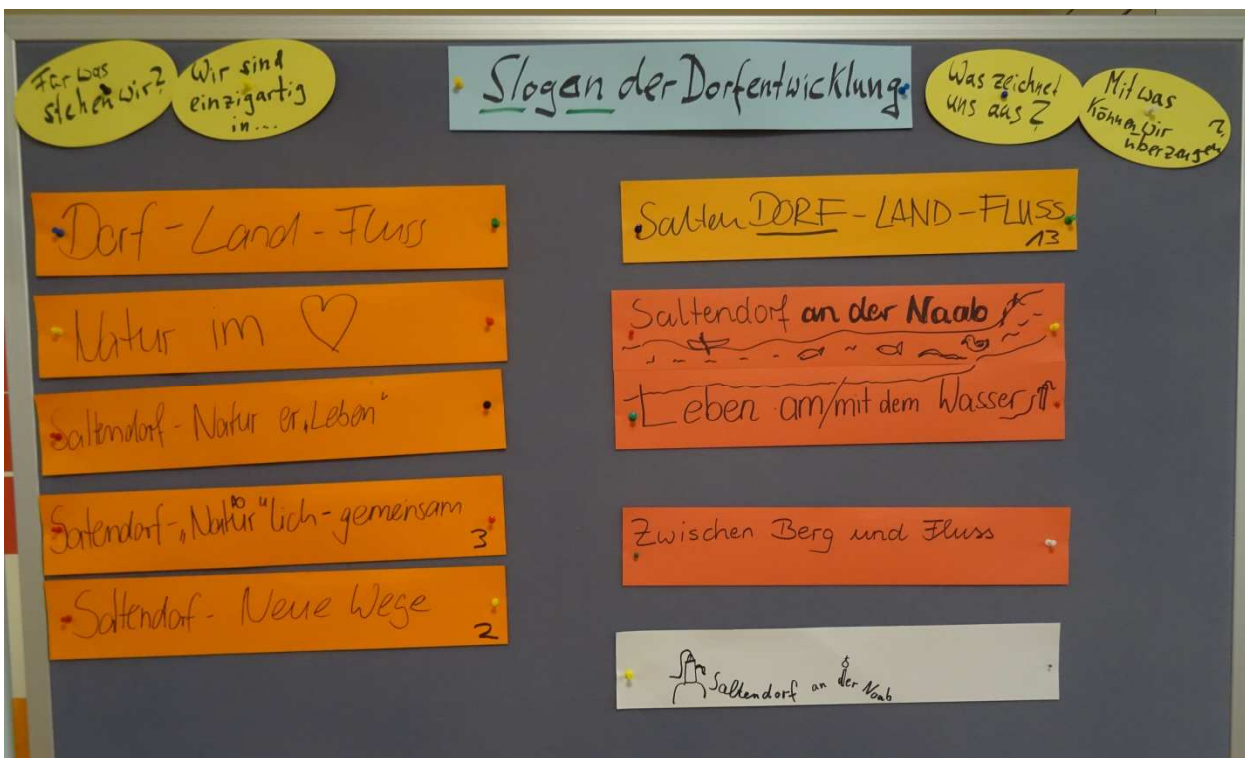 Für was
stehen wir?
Wir sind
einzigartig
in...
Slogan der Dorfentwicklung
Was zeichnet
uns aus?
Mit was
können wir
überzeugen?
Dorf-Land-Fluss
Natur im
Saltendorf - Natur er„Leben"
Saltendorf-„Natür"lich-gemeinsam
3
Saltendorf - Neue Wege
2
SaltenDORF-LAND-FLUSS
13
Saltendorf an der Naab
Leben am/mit dem Wasser
Zwischen Berg und Fluss
Saltendorf an der Naab